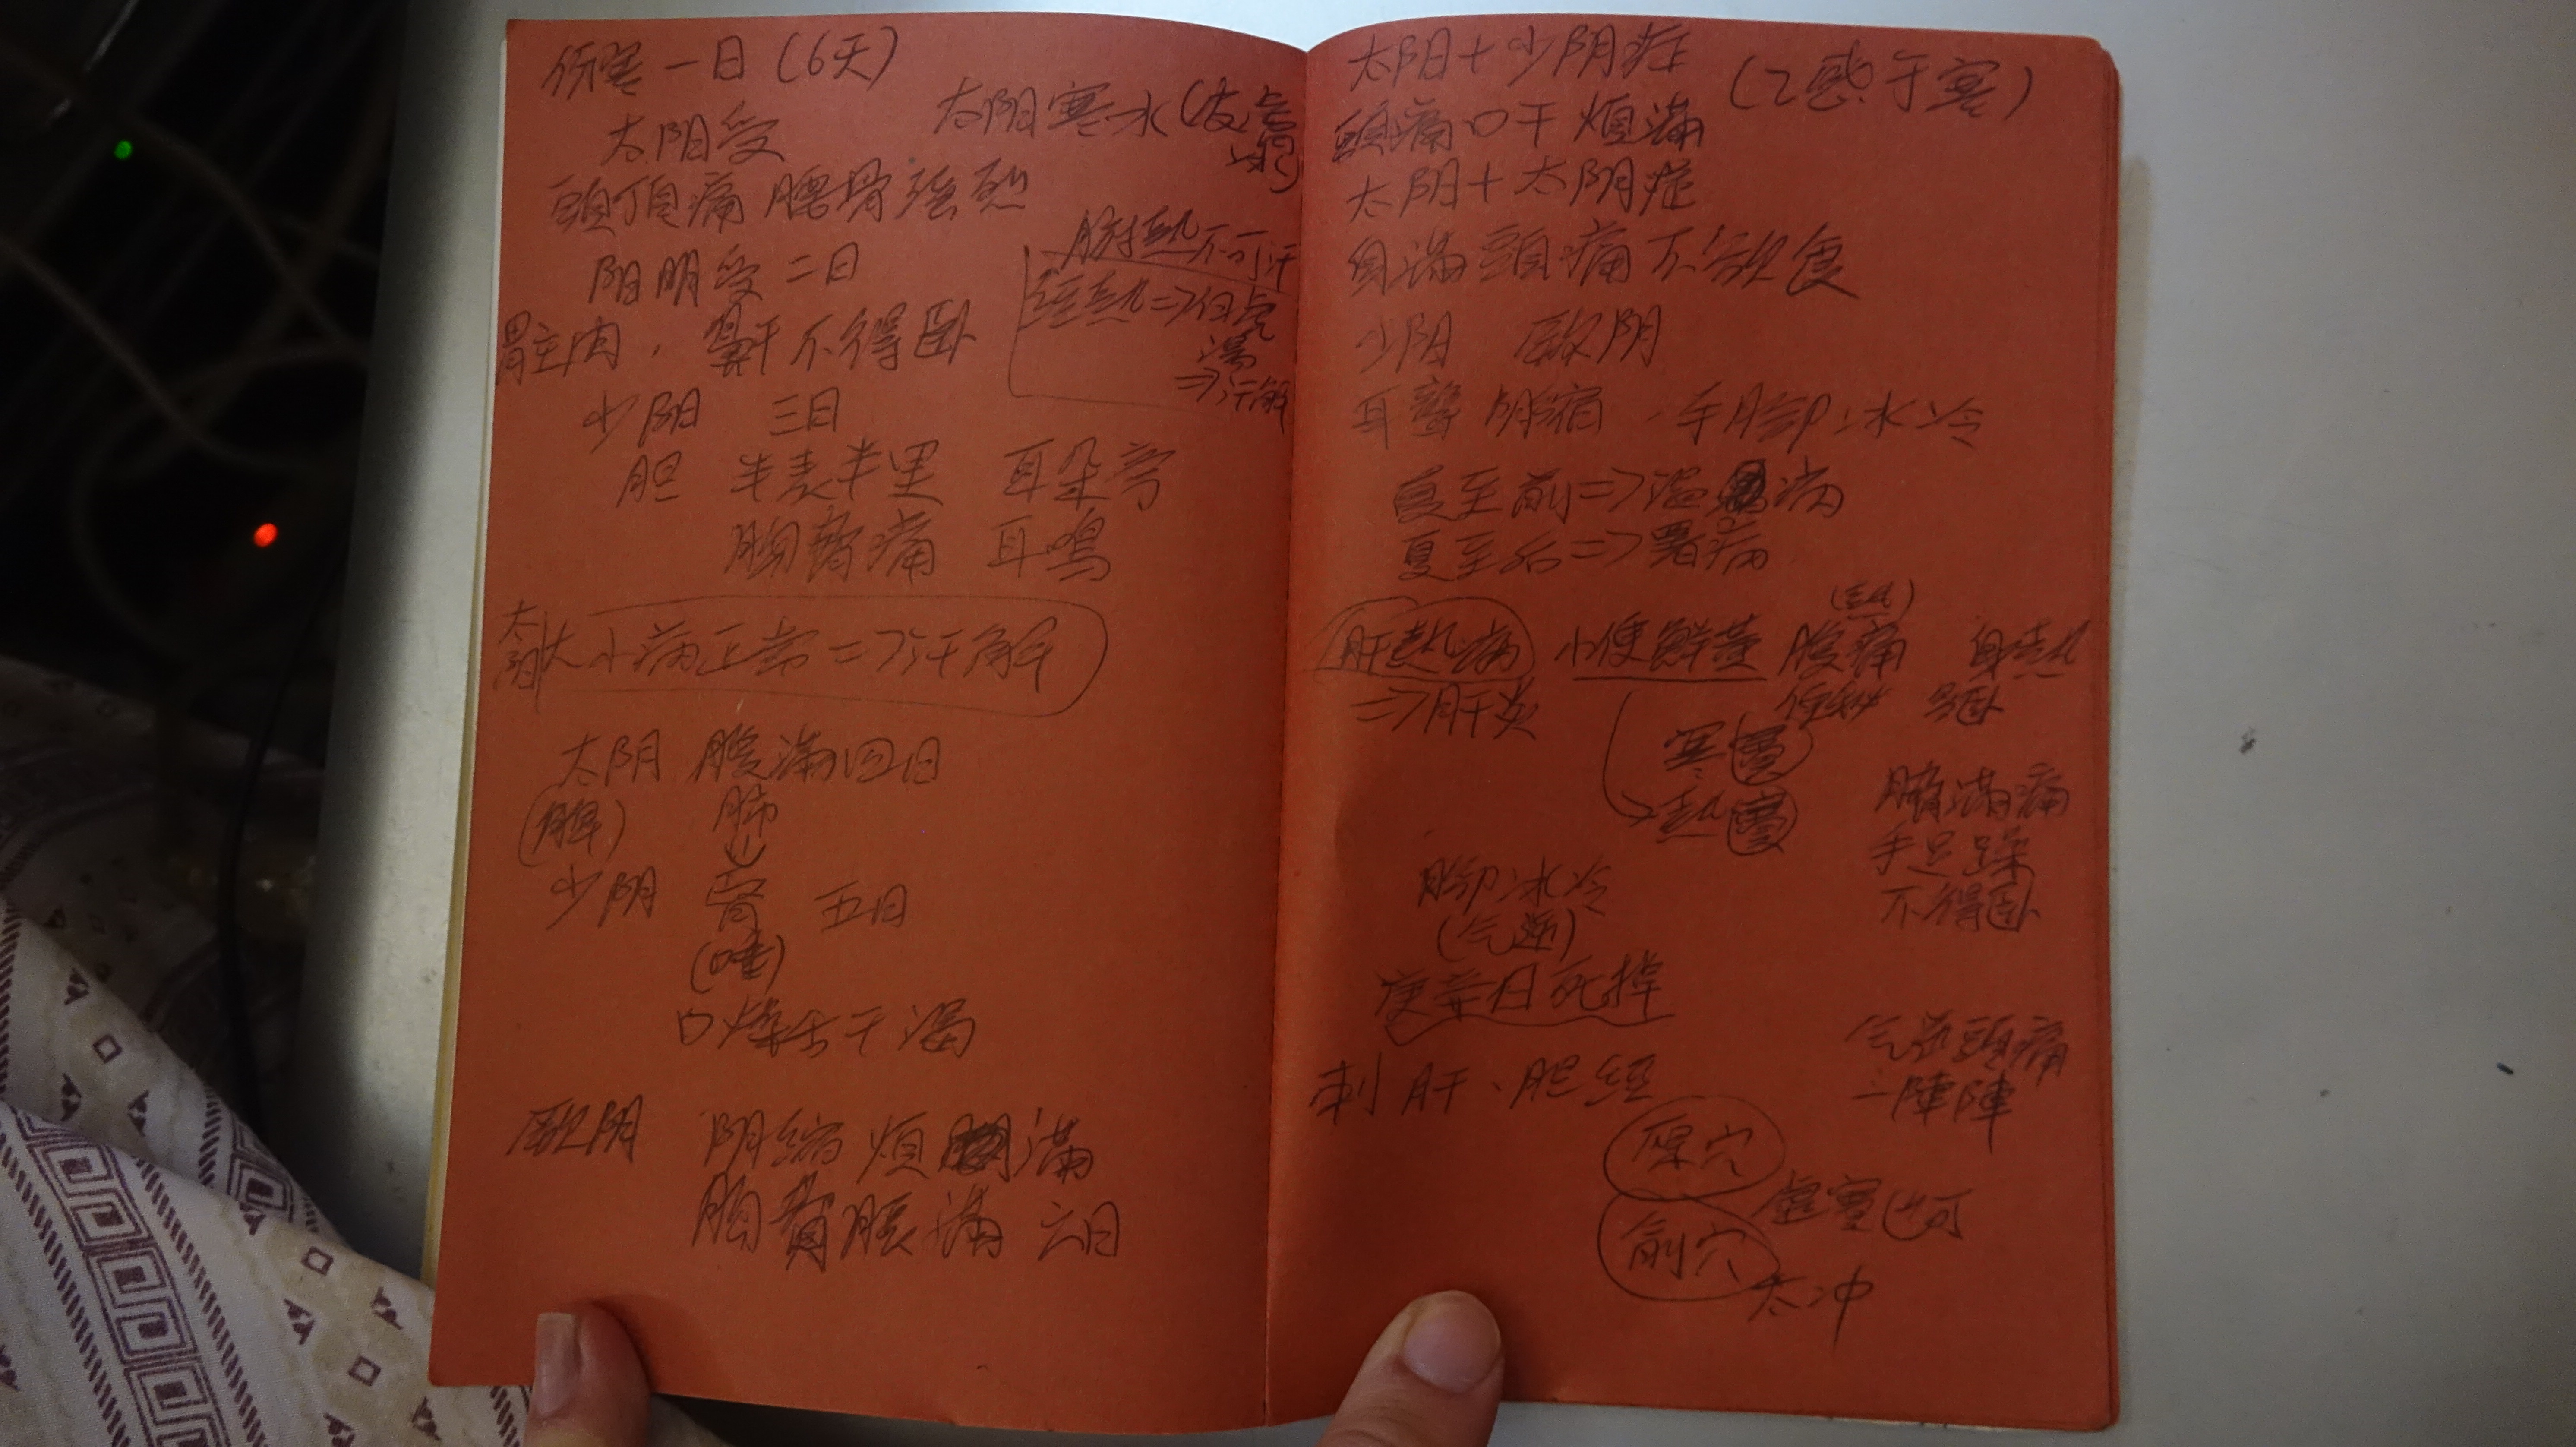 伤寒一日(6天)
太阳受
太阳寒水(皮
頭頂痛腰骨强
阳明受二日
胃主肉,鼻干不得卧
腑熱不可汗
経熱=>白虎
湯
=>汗解
少阳 三日
胆 半表半里 耳朵旁
胸脅痛 耳鳴
大小病正常=>汗解
太阴 腹满四日
(脾) 肺
少阴 肾 五日
(唾)
口燥舌干渴
厥阴 阴縮煩满
胸脅腹满 六日
太阳+少阴症 (2感于寒)
頭痛口干煩满
太阴+太阳症
身满頭痛不飲食
少阳 厥阴
耳聾 阴縮 手脚冰冷
夏至前=>温病
夏至后=>暑病
(熱)
肝熱病 小便鮮黄 腹痛 身熱
=>肝炎 便秘 多卧
寒實
熱實
脅满痛
手足躁
不得卧
脚冰冷
(气逆)
庚辛日死掉
气逆頭痛
一陣陣
刺肝、胆経
原穴
虚實均可
俞穴
太冲